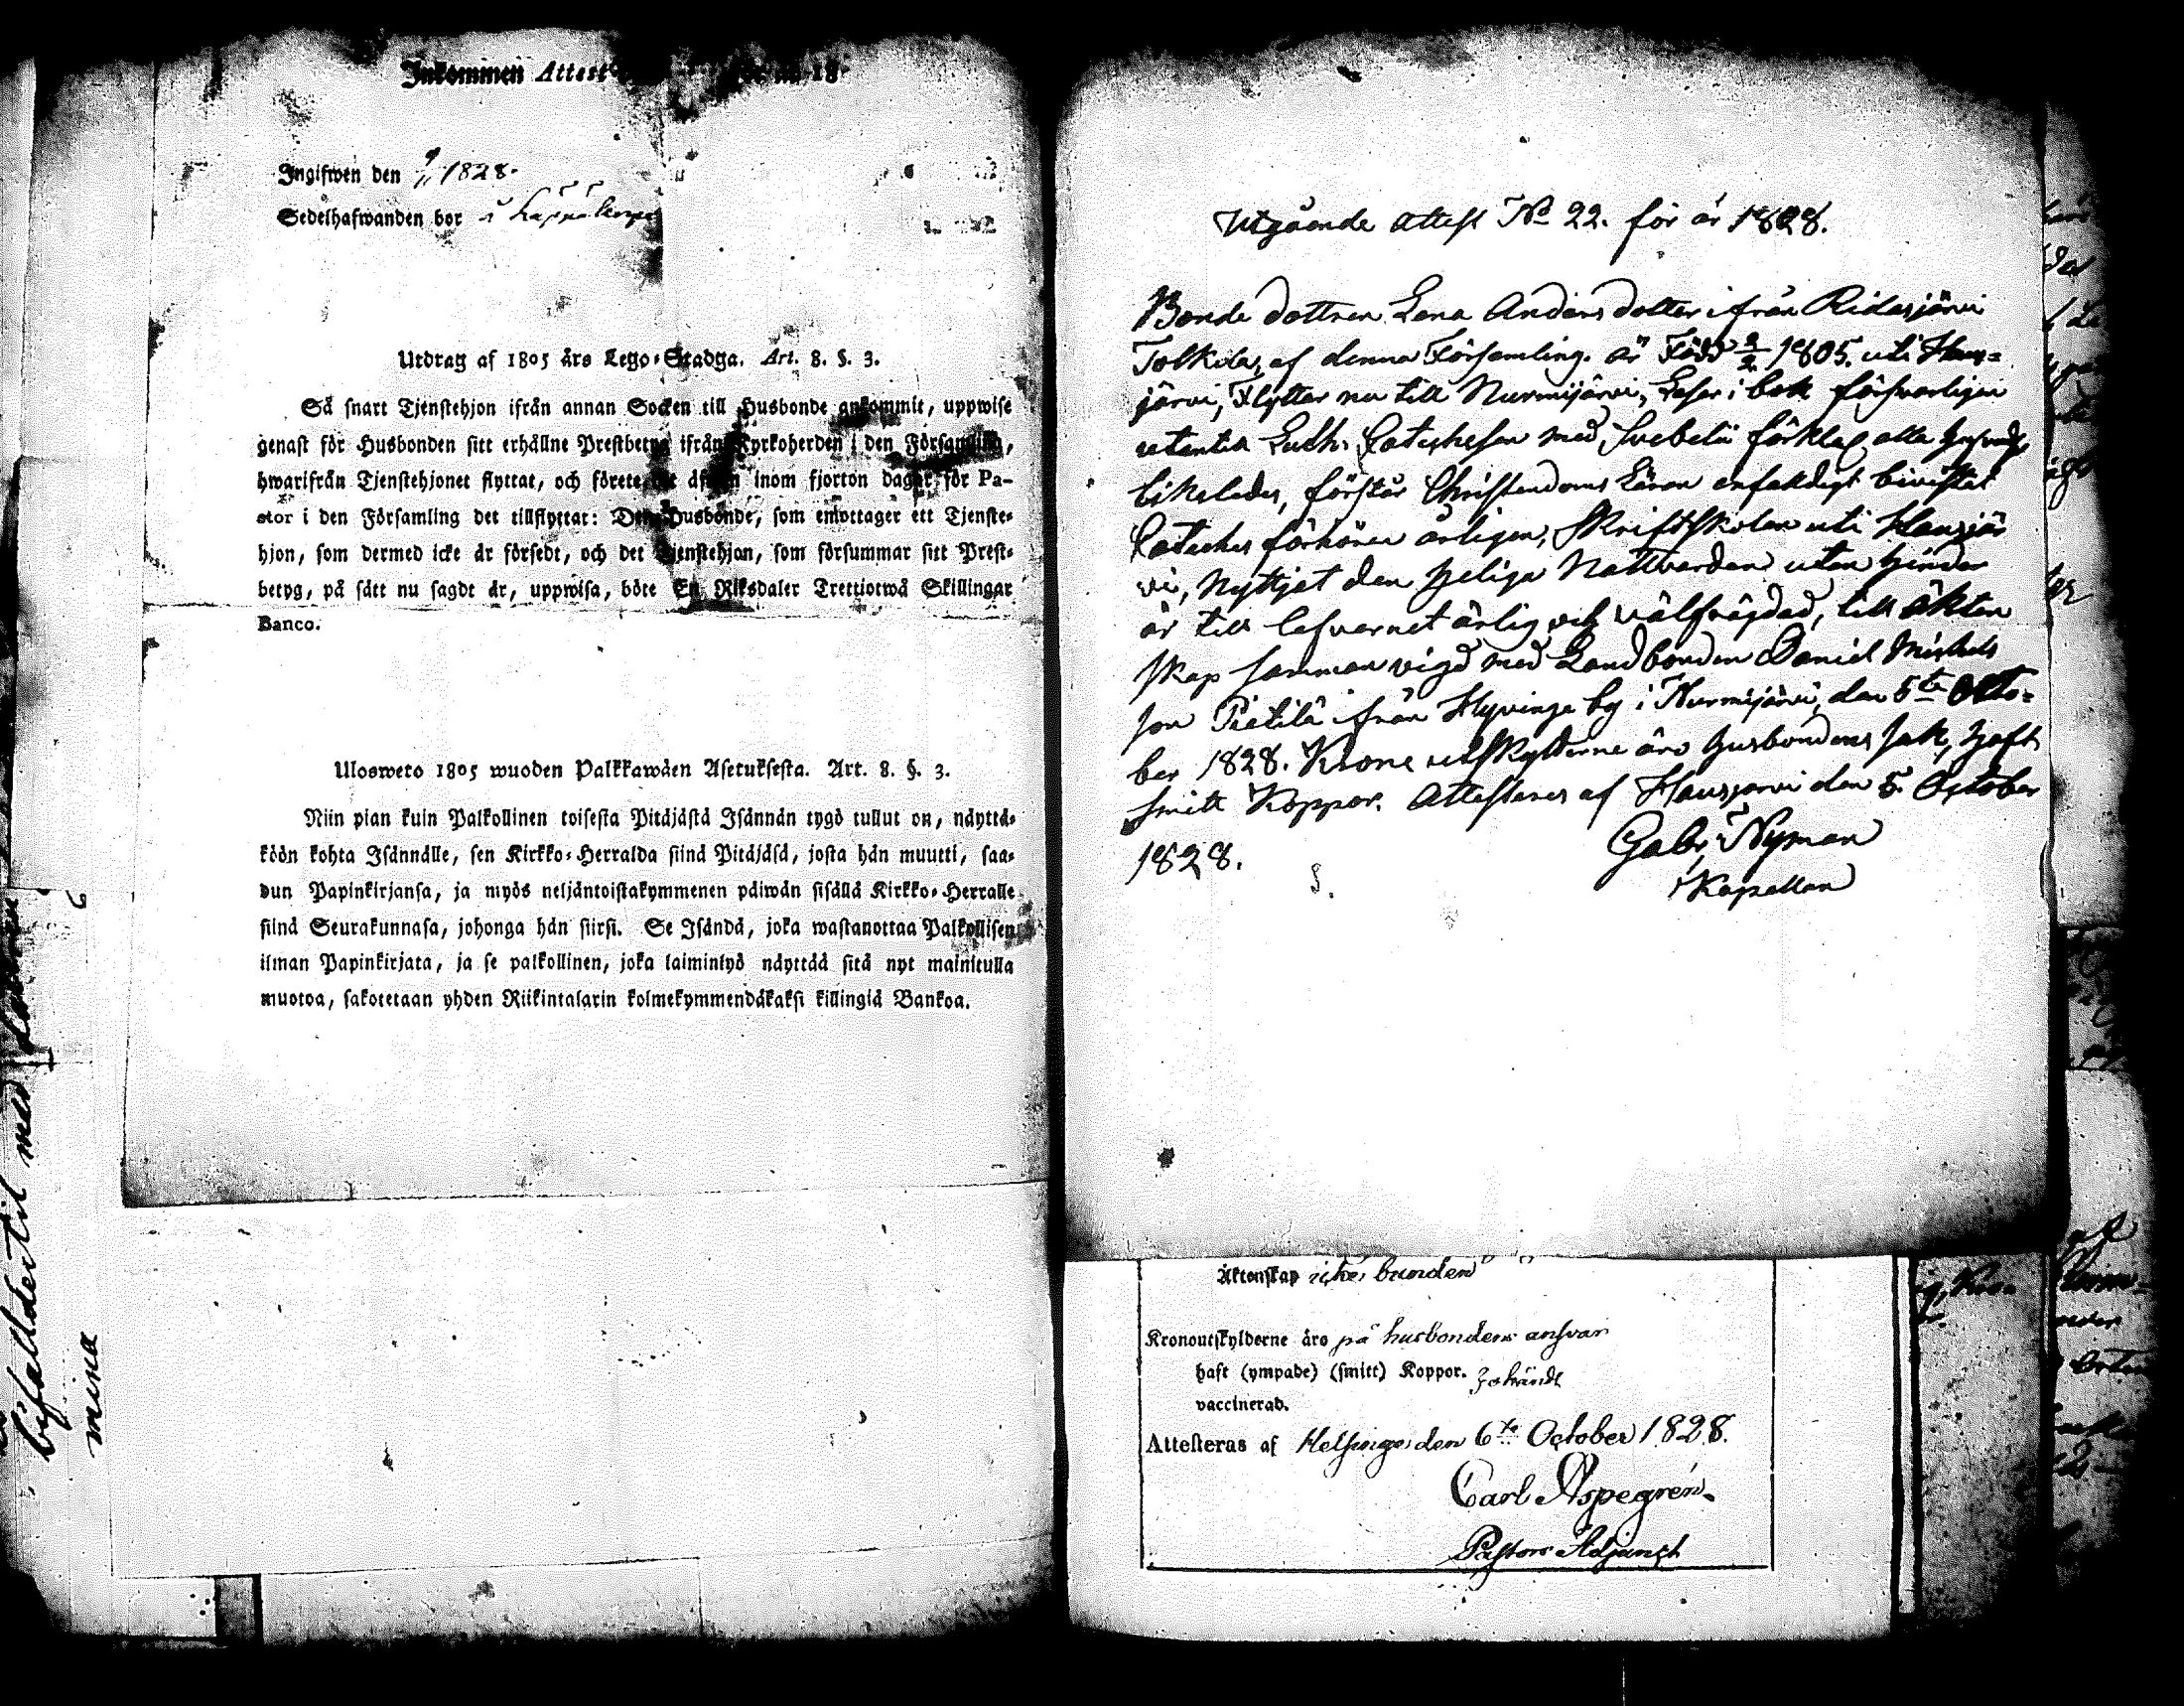 Inkommen Attest
Ingifwen den 9/11 1828.
Sedelhafwanden bor i
Utdrag af 1805 års Lego-Stadga. Art. 8. §. 3.
Så snart Tjenstehjon ifrån annan Socken till Husbonde ankommit, uppwise
genast för Husbonden sitt erhållne Prestbetyg ifrån Kyrkoherden i den Församling,
hwarifrån Tjenstehjonet flyttat, och förete det äfwen inom fjorton dagar för Pa-
stor i den Församling det tillflyttat: Den Husbonde, som emottager ett Tjenste-
hjon, som dermed icke är försedt, och det Tjenstehjon, som försummar sitt Prest-
betyg, på sätt nu sagdt är, uppwisa, böte En Riksdaler Trettiotwå Skillingar
Banco.
Ulosweto 1805 wuoden Palkkawäen Asetuksesta. Art. 8. §. 3.
Niin pian kuin Palkollinen toisesta Pitäjästä Isännän tygö tullut on, näyttä-
köön kohta Isännälle, sen Kirkko-Herralda siinä Pitäjäsä, josta hän muutti, saa-
dun Papinkirjansa, ja myös neljäntoistakymmenen päiwän sisällä Kirkko-Herralle
siinä Seurakunnasa, johonga hän siirsi. Se Isändä, joka wastanottaa Palkollisen
ilman Papinkirjata, ja se palkollinen, joka laiminlyö näyttää sitä nyt mainitulla
muotoa, sakotetaan yhden Riikintalarin kolmekymmendäkaksi killingiä Bankoa.
bifalldertil med
mina
Utgående Attest No 22. för år 1828.
Bonde dottren Lena Anders dotter ifrån Ridasjärvi
Tolkila, af denna Församling. är Född 2/2 1805. uti Haus=
järvi, Flyttar nu till Nurmijärvi, Läser i bok försvarligen
utantill Luth. Catechesen med Svebelii förklar alla
likaledes, förstår Christendoms Läran enfaldigt bivistat
Catechis förhören årligen, Skriftskolan uti Hausjär
vi, Nyttjat den heliga Nattvarden utan hinder
är till lefvernet ärlig och välfrägdad, till äkten
skap samman vigd med Landbonden Daniel Michels
son Pietilä ifrån Hyvinge by i Nurmijärvi, den 5te Octo=
ber 1828. Krono utskylderne äro husbondens sak, haft
smitt Koppor. Attesteras af Hausjärvi den 5. October
1828.
Gabr. Nyman
Kapellan
Äktenskap icke bunden
Kronoutskylderne äro på husbondens ansvar
haft (ympade) (smitt) Koppor.
vaccinerad.
Attesteras af Helsinge den 6te October 1828.
Carl Aspegrén.
Pastors Adjunct